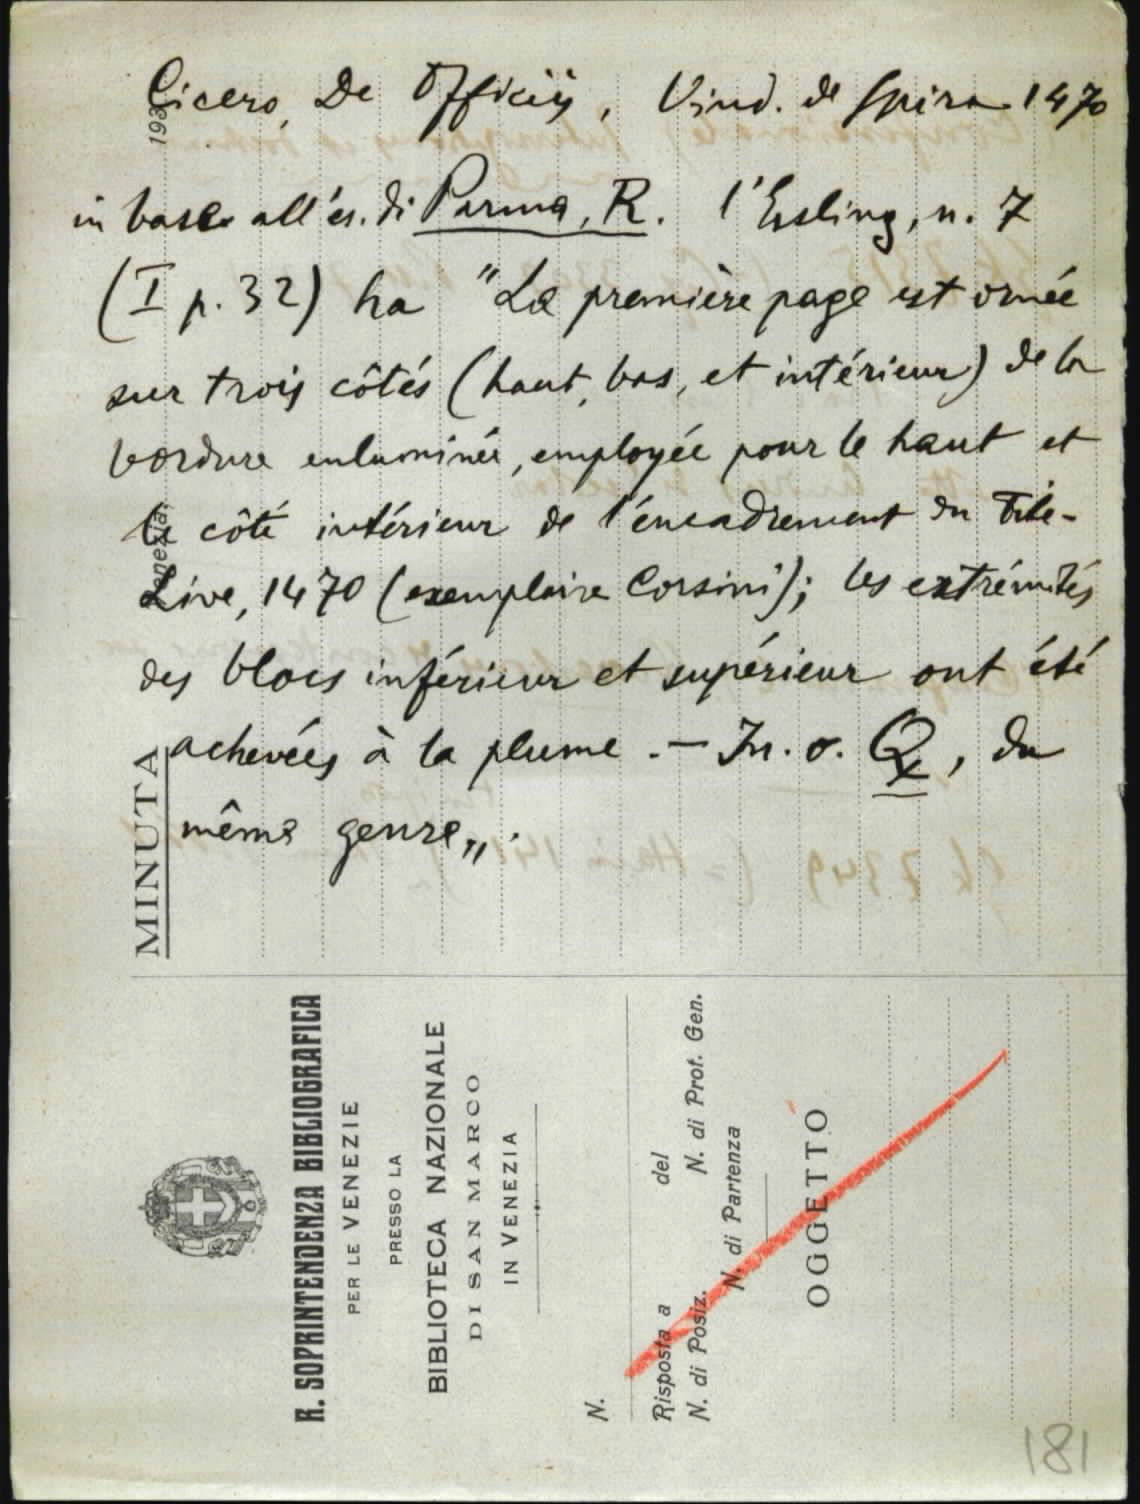 Cicero, De Officiis, Vind. de Spira 1470
in base all'es. di Parma, R. l'Essling, n. 7
(I p. 32) ha "La première page est ornée
sur trois côtés (haut, bas, et intérieur) de la
bordure enluminée, employée pour le haut et
le côté intérieur de l'encadrement du Tite-
Live, 1470 (exemplaire Corsini); les extrémités
des blocs inférieur et supérieur ont été
achevées à la plume. — In. o. Q, du
même genre„.
193
Venezia,
MINUTA
R. SOPRINTENDENZA BIBLIOGRAFICA
PER LE VENEZIE
PRESSO LA
BIBLIOTECA NAZIONALE
DI SAN MARCO
IN VENEZIA
N.
Risposta a del
N. di Posiz. N. di Prot. Gen.
N. di Partenza
OGGETTO
181